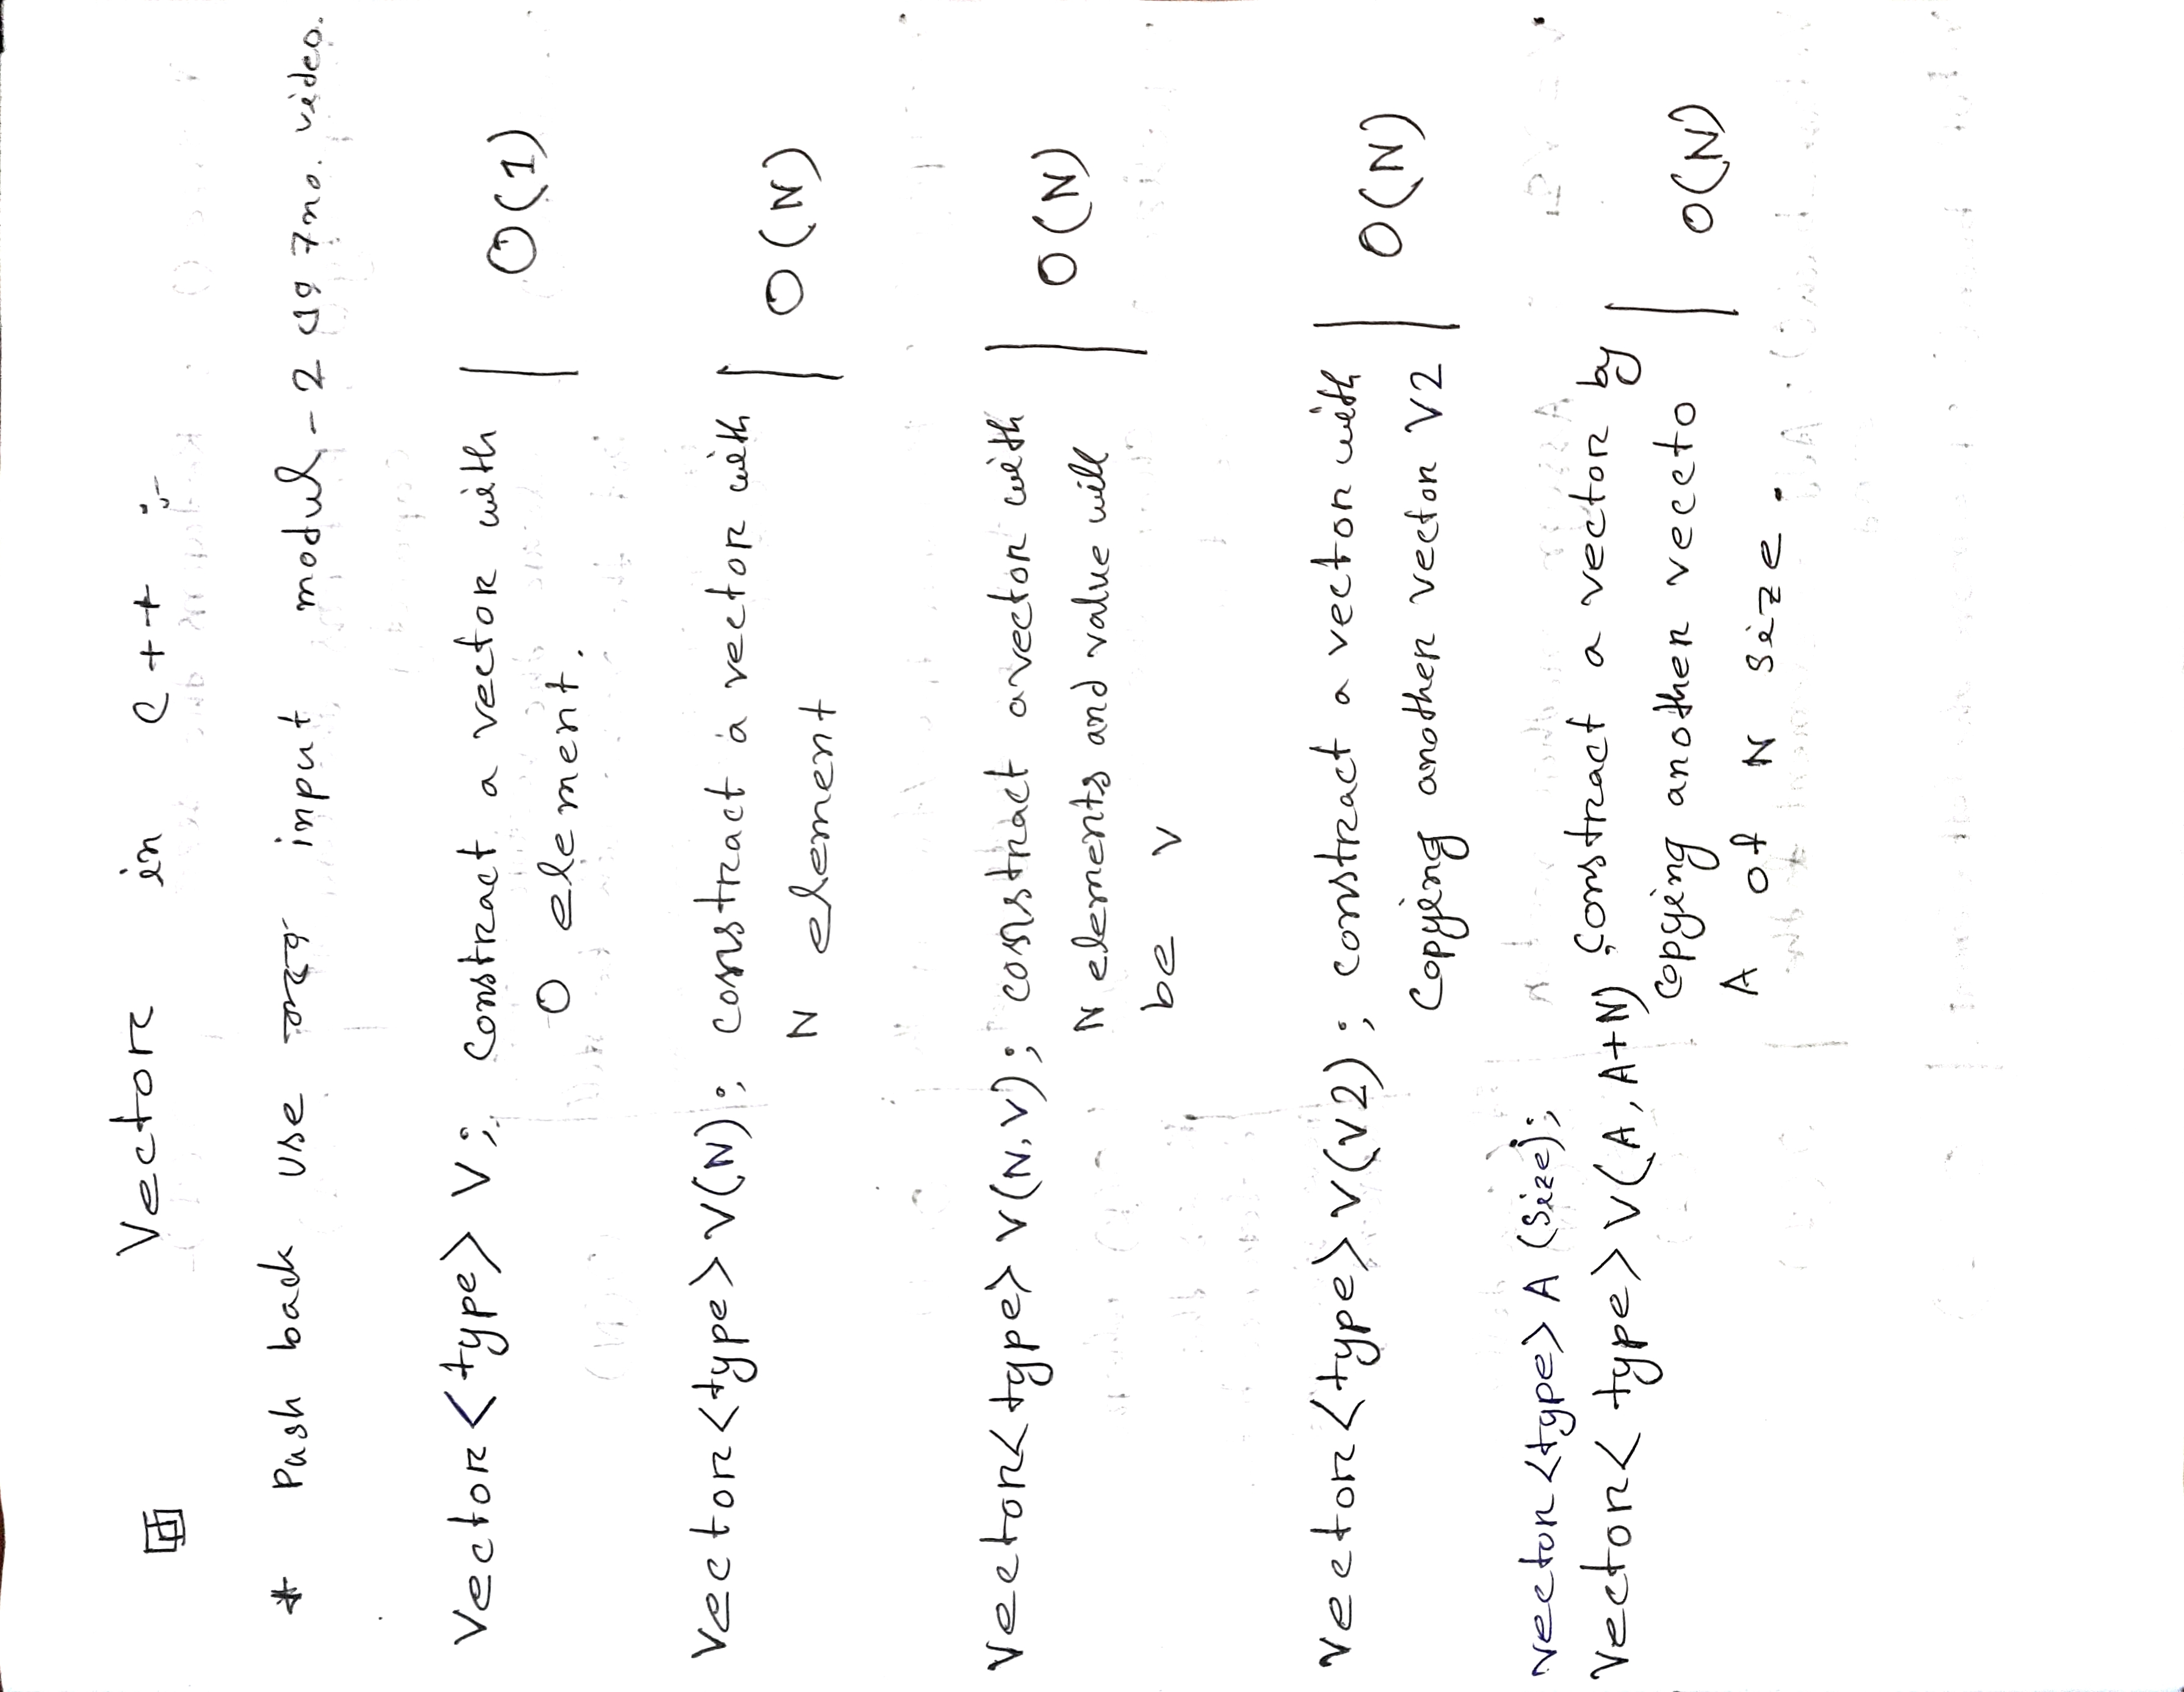 Vector in C++ :-
* Push back use করে input modul-2 এর 7no. video.
Vector<type> V; Constract a vector with | O(1)
0 element.
Vector<type> V(N); constract a vector with | O(N)
N element
Vector<type> V(N,V); constract a vector with | O(N)
N elements and value will
be V
Vector<type> V(V2); constract a vector with | O(N)
Copying another vector V2
vector<type> A (Size);
Vector<type> V(A, A+N) ; Constract a vector by
copying another veccto | O(N)
A of N size.